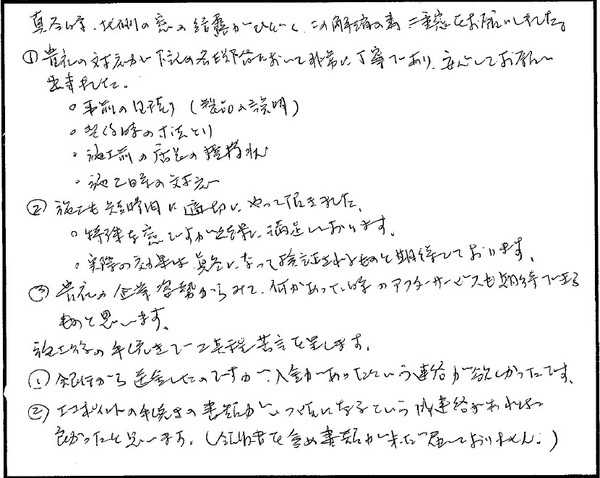 真冬は、北側の窓の結露がひどく、この解消の為 二重窓をお願いしました。
① 貴社の対応が下記の各段階において非常に丁寧であり、安心してお願い
出来ました。
・事前の見積り (製品の説明)
・契約時の寸法とり
・施工前の店長の挨拶状
・施工日の対応
② 施工も短時間に適切にやって頂きました。
・特殊な窓ですが結果に満足しております。
・実際の効果は、真冬になって検証されるものと期待しております。
③ 貴社の企業姿勢からみて、何かあった時のアフターサービスも期待できる
ものと思います。
施工後の手続きで二点程苦言を呈します。
① 銀行から送金したのですが、入金があったという連絡が欲しかったです。
② エコポイントの手続きの書類がいつ頃になるという御連絡があれば
良かったと思います。(領収書を含め書類が未だ届いておりません。)